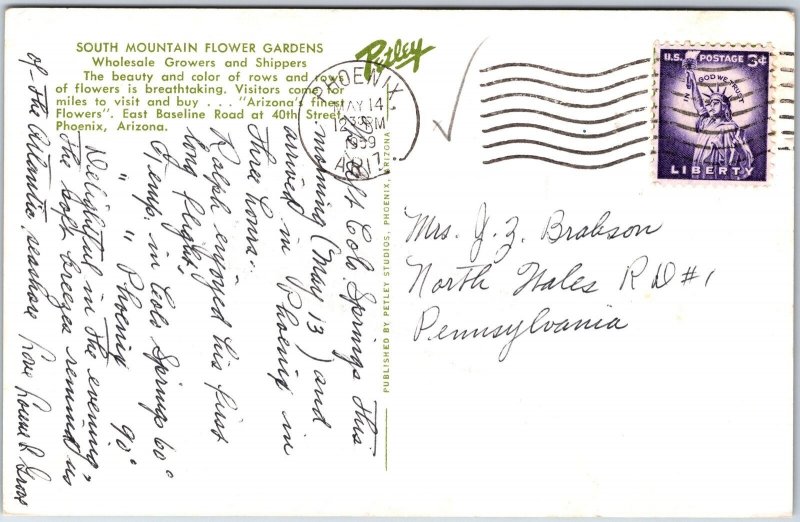 SOUTH MOUNTAIN FLOWER GARDENS
Wholesale Growers and Shippers
The beauty and color of rows and rows
of flowers is breathtaking. Visitors come for
miles to visit and buy . . . "Arizona's finest
Flowers". East Baseline Road at 40th Street,
Phoenix, Arizona.
Petley
PHOENIX
MAY 14
12 PM
1959
ARIZ.
U.S. POSTAGE 3¢
IN GOD WE TRUST
LIBERTY
PUBLISHED BY PETLEY STUDIOS, PHOENIX, ARIZONA
Left Colo Springs this
morning (May 13) and
arrived in Phoenix in
three hours.
Ralph enjoyed his first
long flight.
Temp. in Colo Springs 60°
" " Phoenix 90°
Delightful in the evening,
the soft breezes remind us
of the Atlantic seashore Love
Mrs. J. Z. Brabson
North Wales R D #1
Pennsylvania